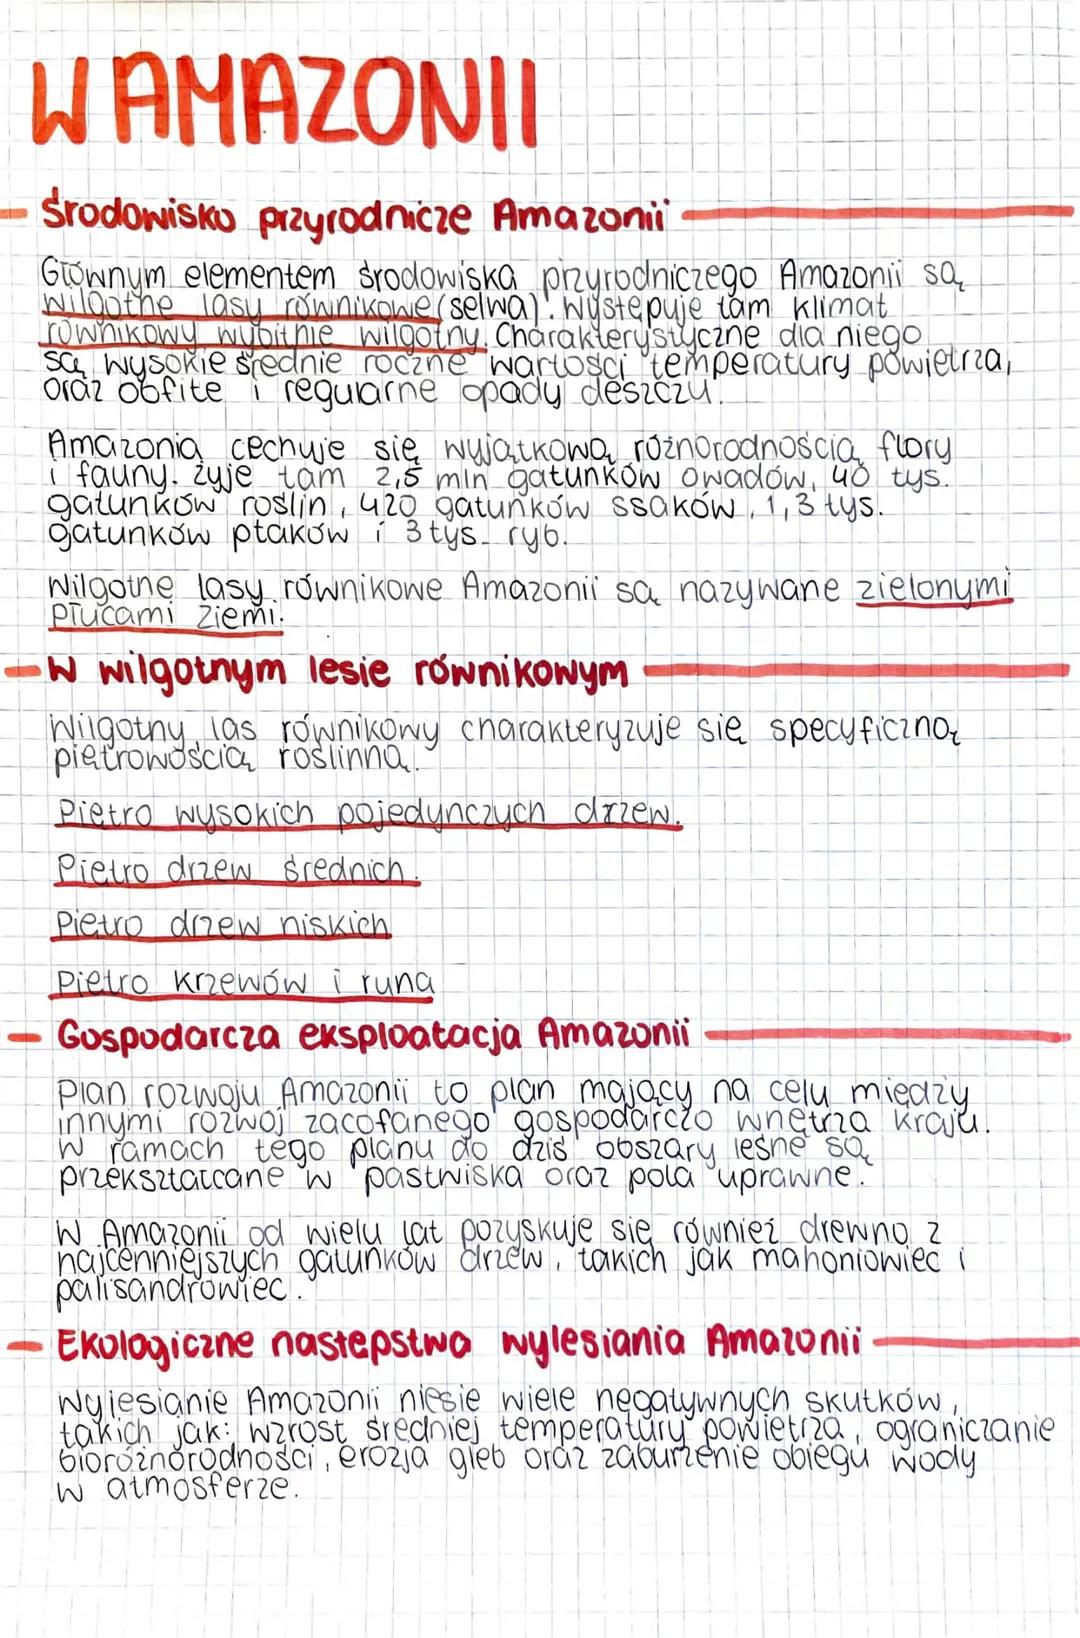 W AMAZONII
Środowisko przyrodnicze Amazonii
Głównym elementem środowiska przyrodniczego Amazonii są
wilgotne lasy równikowe (selwa). Występuje tam klimat
równikowy wybitnie wilgotny. Charakterystyczne dla niego
są wysokie średnie roczne wartości temperatury powietrza,
oraz obfite i regularne opady deszczu.
Amazonia cechuje się wyjątkową różnorodnością flory
i fauny. żyje tam 2,5 mln gatunków owadów, 40 tys.
gatunków roślin, 420 gatunków ssaków, 1,3 tys.
gatunków ptaków i 3 tys. ryb.
Wilgotne lasy równikowe Amazonii są nazywane zielonymi
płucami ziemi.
W wilgotnym lesie równikowym
Wilgotny las równikowy charakteryzuje się specyficzną
piętrowością roślinną.
Piętro wysokich pojedynczych drzew.
Piętro drzew średnich.
Piętro drzew niskich
Piętro krzewów i runa
Gospodarcza eksploatacja Amazonii
Plan rozwoju Amazonii to plan mający na celu między
innymi rozwój zacofanego gospodarczo wnętrza kraju.
W ramach tego planu do dziś obszary leśne są
przekształcane w pastwiska oraz pola uprawne.
W Amazonii od wielu lat pozyskuje się również drewno z
najcenniejszych gatunków drzew, takich jak mahoniowiec i
palisandrowiec.
Ekologiczne następstwa wylesiania Amazonii
Wylesianie Amazonii niesie wiele negatywnych skutków,
takich jak: wzrost średniej temperatury powietrza, ograniczanie
bioróżnorodności, erozja gleb oraz zaburzenie obiegu wody
w atmosferze.